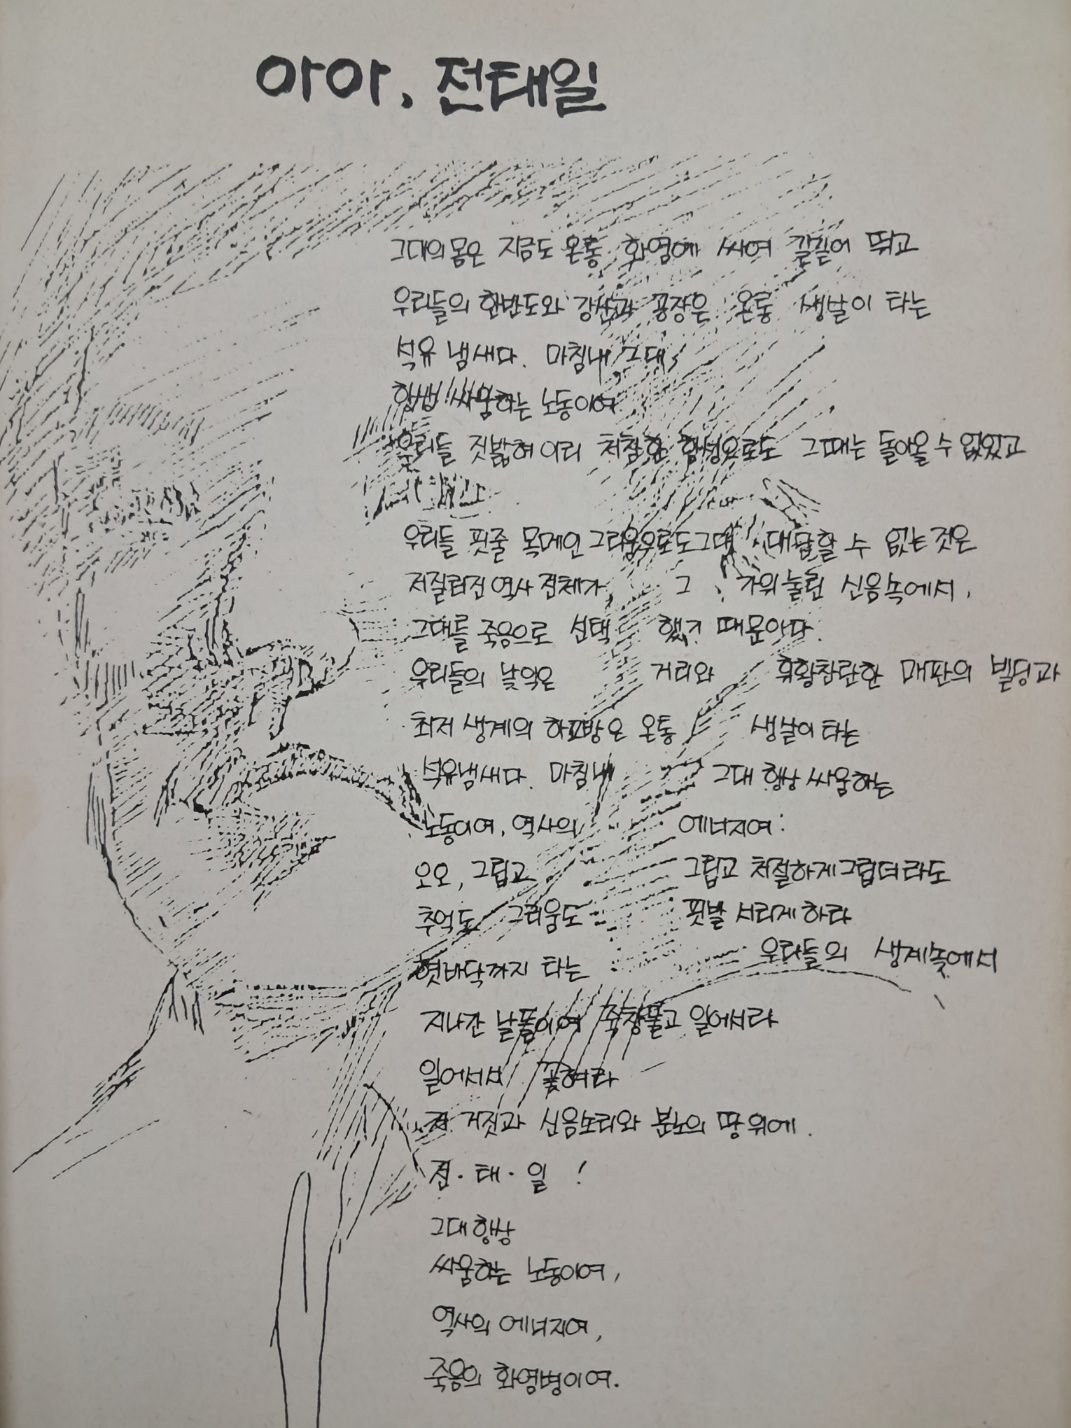 아아, 전태일
그대의 몸은 지금도 온통 화염에 싸여 길길이 뛰고
우리들의 한반도와 강산과 공장은 온통 생살이 타는
석유 냄새다. 마침내, 그대,
항상 싸움하는 노동이여
우리들 짓밟혀 이리 처참한 함성으로도 그대는 돌아올 수 없었고
우리들 핏줄 목메인 그리움으로도 그대 대답할 수 없는 것은
저질러진 역사 전체가 그 가위눌린 신음속에서,
그대를 죽음으로 선택했기 때문이다.
우리들의 낯익은 거리와 휘황찬란한 매판의 빌딩과
최저 생계의 하꼬방은 온통 생살이 타는
석유냄새다. 마침내 그대 항상 싸움하는
노동이여, 역사의 에너지여:
오오, 그립고 그립고 처절하게 그립더라도
추억도 그리움도 핏발 서리게 하라
우리들의 생계속에서
혓바닥까지 타는
지나간 날들이여 죽창들고 일어서라
일어서서 꽂혀라
저 거짓과 신음소리와 분노의 땅 위에.
전·태·일!
그대 항상
싸움하는 노동이여,
역사의 에너지여,
죽음의 화염병이여.